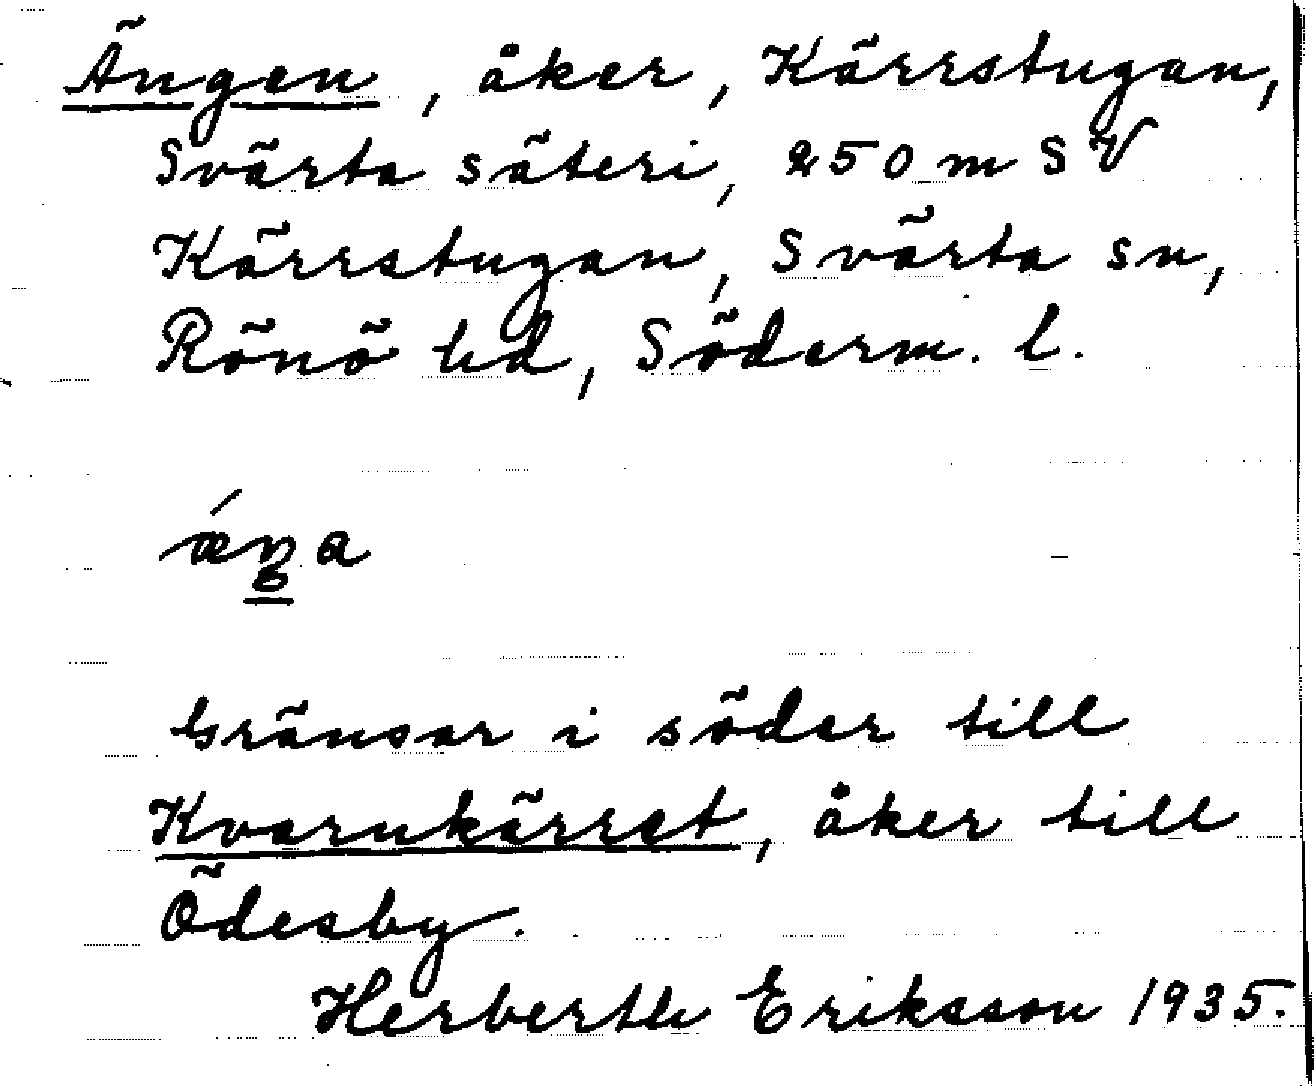 Ängen, åker, Kärrstugan,
Svärta säteri, 250 m SV
Kärrstugan, Svärta sn,
Rönö hd, Söderm. l.
ǽŋa
Gränsar i söder till
Kvarnkärret, åker till
Ödesby.
Herberth Eriksson 1935.